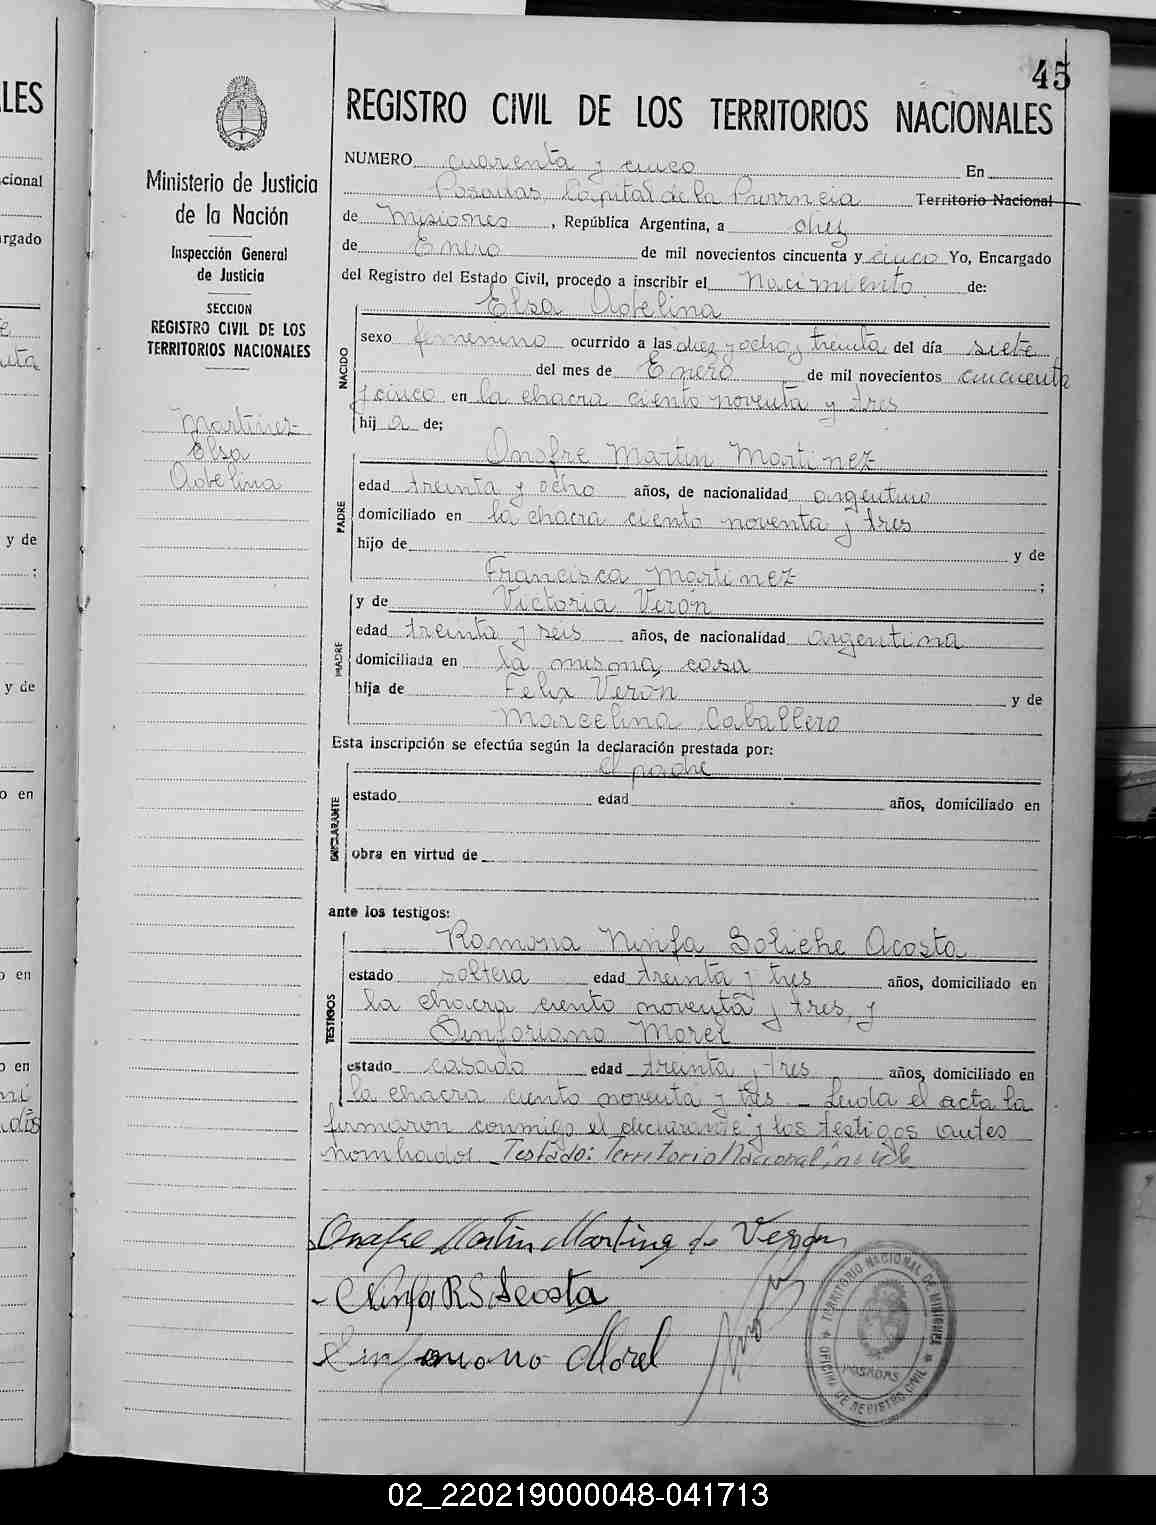 45
REGISTRO CIVIL DE LOS TERRITORIOS NACIONALES
Ministerio de Justicia
de la Nación
Inspección General
de Justicia
SECCION
REGISTRO CIVIL DE LOS
TERRITORIOS NACIONALES
Martinez
Elsa
Adelina
NUMERO cuarenta y cinco En
Posadas Capital de la Provincia Territorio Nacional
de Misiones, República Argentina, a diez
de Enero de mil novecientos cincuenta y cinco Yo, Encargado
del Registro del Estado Civil, procedo a inscribir el Nacimiento de:
Elsa Adelina
NACIDO
sexo femenino ocurrido a las diez y ocho y treinta del día siete
del mes de Enero de mil novecientos cincuenta
y cinco en la chacra ciento noventa y tres
hij a de;
Onofre Martin Martinez
PADRE
edad treinta y ocho años, de nacionalidad argentino
domiciliado en la chacra ciento noventa y tres
hijo de y de
Francisca Martinez ;
y de Victoria Verón
MADRE
edad treinta y seis años, de nacionalidad argentina
domiciliada en la misma casa
hija de Felix Verón y de
Marcelina Caballero
Esta inscripción se efectúa según la declaración prestada por:
el padre
DECLARANTE
estado edad años, domiciliado en
obra en virtud de
ante los testigos:
Ramona Ninfa Acosta
TESTIGOS
estado soltera edad treinta y tres años, domiciliado en
la chacra ciento noventa y tres, y
Sinforiano Morel
estado casado edad treinta y tres años, domiciliado en
la chacra ciento noventa y tres - Leida el acta la
firmaron conmigo el declarante y los testigos antes
nombrados - Testado: Territorio Nacional, no vale
Onofre Martin Martinez
Ninfa R S Acosta
Sinforiano Morel
TERRITORIO NACIONAL DE MISIONES
POSADAS
OFICINA DE REGISTRO CIVIL
LES
cional
rgado
y de
;
y de
o en
o en
o en
02_220219000048-041713